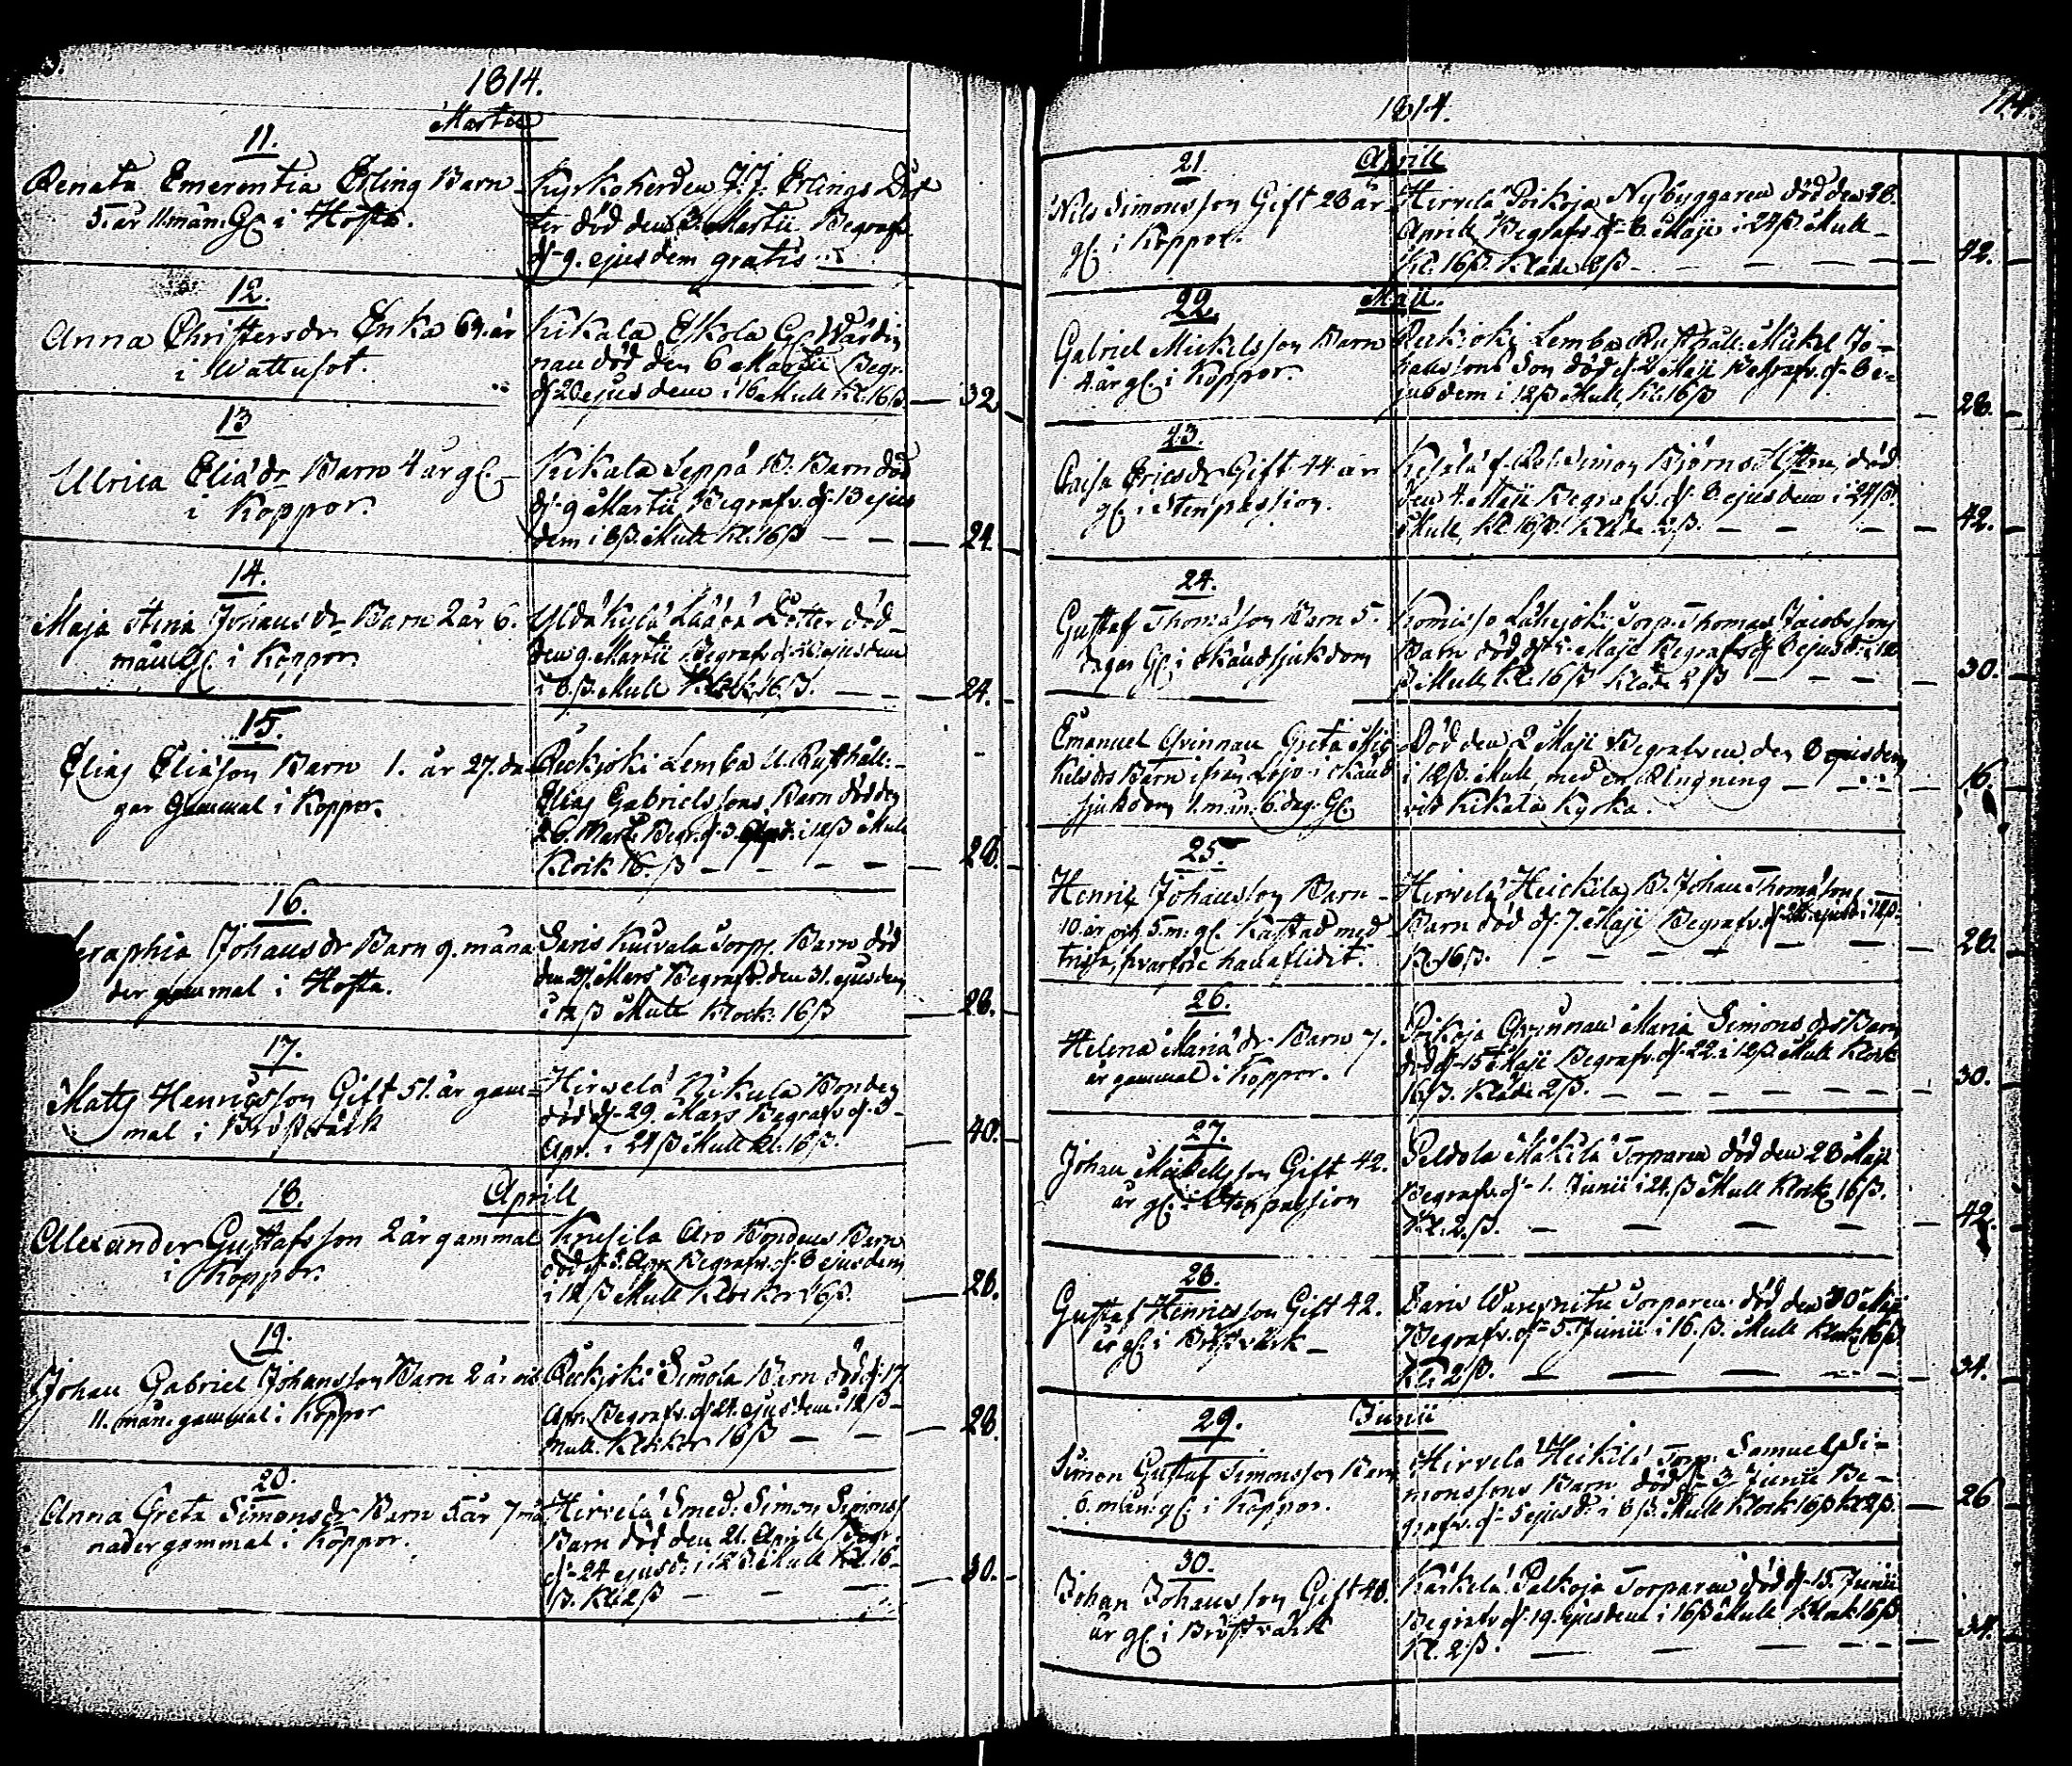 1814.
Martii
11.
Renata Emerentia Erling Barn
5. år 11. mån. Gl. i Hosta.
Kyrkoherden J. J. Erlings Dot
ter död den 3. Martii Begrafv.
d. 9. ejusdem gratis
12.
Anna Christersdr Enka 64. år
i Wattusot.
Kikala Eskola Gl. Wärdin
nan död den 6 Martii Begr.
d. 20 ejusdem i 16 Mull Kl. 16 ß. — 32
13
Ulrica Eliædr Barn 4 år gl.
i Koppor.
Kikala Seppä B. Barn död
d. 9 Martii Begrafv. d. 13 ejus
dem i 8 ß. Mull Kl. 16 ß — — 24.
14.
Maja Stina Johansdr Barn 2 år 6.
mån. Gl. i Koppor
Yldäkylä Dotter död
den 9. Martii Begrafv. d. ejusdem
i 8. ß. Mull Klock. 16 ß. — — 24.
15.
Elias Eliæson Barn 1. år 27. da
gar gammal i Koppor.
Reckjoki Lemba U. Rusthåll.
Elias Gabrielssons Barn död den
26. Mart. Begr. d. 3. i 12 ß Mull
Klock 16. ß — — — 28.
16.
eraphia Johansdr Barn 9. måna
der gammal i Hosta.
Saris Kurvala Torp. Barn död
den 27. Mars Begrafv. den 31. ejusdem
i 12 ß Mull Klock. 16 ß — 28.
17.
Matts Henricsson Gift 51. år gam=
mal i Bröstwärk
Hirvelä Nikula Bonden
död d. 29. Mars Begrafv. d. 3
Apr. i 24 ß Mull kl. 16 ß. — 40.
Aprill
18.
Alexander Gustafsson 2 år gammal
i Koppor.
Knusila Aro Bondens Barn
död d. 3. Apr. Begrafv. d. 8 ejusdem
i 12 ß Mull Klockor 16 ß. — 28.
19.
Johan Gabriel Johansson Barn 2 år och
11. mån. gammal i Koppor
Reckjoki Simola Barn död d. 17
Apr. Begrafv. d. 24. ejusdem i 12 ß
Mull. Klockor 16 ß — — 28.
20.
Anna Greta Simonsdr Barn 5 år 7 må
nader gammal i Koppor.
Hirvelä Smed. Simon Simonss
Barn död den 21. Aprill Begr.
d. 24 ejusd. i 12 ß. Mull Kl. 16
ß. Kl. 2 ß — — — 30.
1814.
114.
21. Aprill
Nils Simonsson Gift 28 år
gl. i Koppor.
Hirvelä Poikoja Nybyggaren död den 28.
Aprill Begrafv. d. 8. Maji i 24 ß. Mull
Kl. 16 ß. Kläde 2 ß — — — 42.
22. Maji.
Gabriel Mickelsson Barn
4 år gl. i Koppor.
Reckjoki Lemba Rusthåll. Mickel Jo
hanssons Son död d. 2 Maji Begrafv. d. 8 e-
jusdem i 12 ß Mull, Kl. 16 ß — 28.
23.
Caisa Ericsdr Gift 44 år
gl. i Stenpassion.
Kesälä f. Sol. Simon Björns Hustru, död
den 4. Maji Begrafv. d. 8 ejusdem i 24 ß
Mull, Kl. 16 ß. Kläde 2 ß. — — — 42.
24.
Gustaf Thomæson Barn 5.
dagar Gl. i okänd sjukdom
Komisso Lähejoki Torp. Thomas Jacobssons
Barn död d. Maji Begrafv. d. 8 ejusd. i 12
ß Mull, Kl. 16 ß Kläde 2 ß — — — 30.
Emanuel Qvinnan Greta Mic
kelsdrs Barn ifrån Lojo i okänd
sjukdom 1. mån. 6. dag. Gl.
Död den 2 Maji Begrafven den 8 ejusdem
i 12 ß. Mull med en Ringning — 16.
vid Kikala Kyrka.
25.
Henric Johansson Barn
10. år och 5. m. gl. Kastad med
trissa, hvarföre han aflidit.
Hirvelä Heickilä B. Johan Thomæsons
Barn död d. 7. Maji Begrafv. d. ejusd. i 12 ß.
Kl. 16 ß. — — — — 28.
26.
Helena Mariædr Barn 7.
år gammal i Koppor.
Poikoja Qvinnan Maria Simonsdrs Barn
död d. 15 Maji Begrafv. d. 22. i 12 ß. Mull Klock
16 ß. Kläde 2 ß. — — — — 30.
27.
Johan Mickellsson Gift 42.
år gl. i Stenpassion
Peldola Mäkilä Torparen död den 28 Maji
Begrafv. d. 1. Junii i 24. ß Mull Klock 16 ß.
Kl. 2. ß. — — — — 42.
28.
Gustaf Henricsson Gift 42.
år gl. i Bröstvärk
Saris Torparen död den 30 Maji
Begrafv. d. 5. Junii i 16. ß. Mull Klock 16 ß
Kl. 2 ß. — — — 34.
29. Junii
Simon Gustaf Simonsson Barn
6. mån. gl. i Koppor.
Hirvelä Heikilä Torp. Samuel Si-
monssons Barn död d. 3 Junii Be-
grafv. d. 5 ejusd. i 8 ß. Mull Klock 16 ß Kl. 2 ß. — 26
30.
Johan Johansson Gift 40.
år gl. i Bröstvärk
Kärkelä Palkoja Torparen död d. 15. Junii
Begrafv. d. 19. ejusdem i 16 ß Mull Klock 16 ß
Kl. 2 ß. — — — 34.